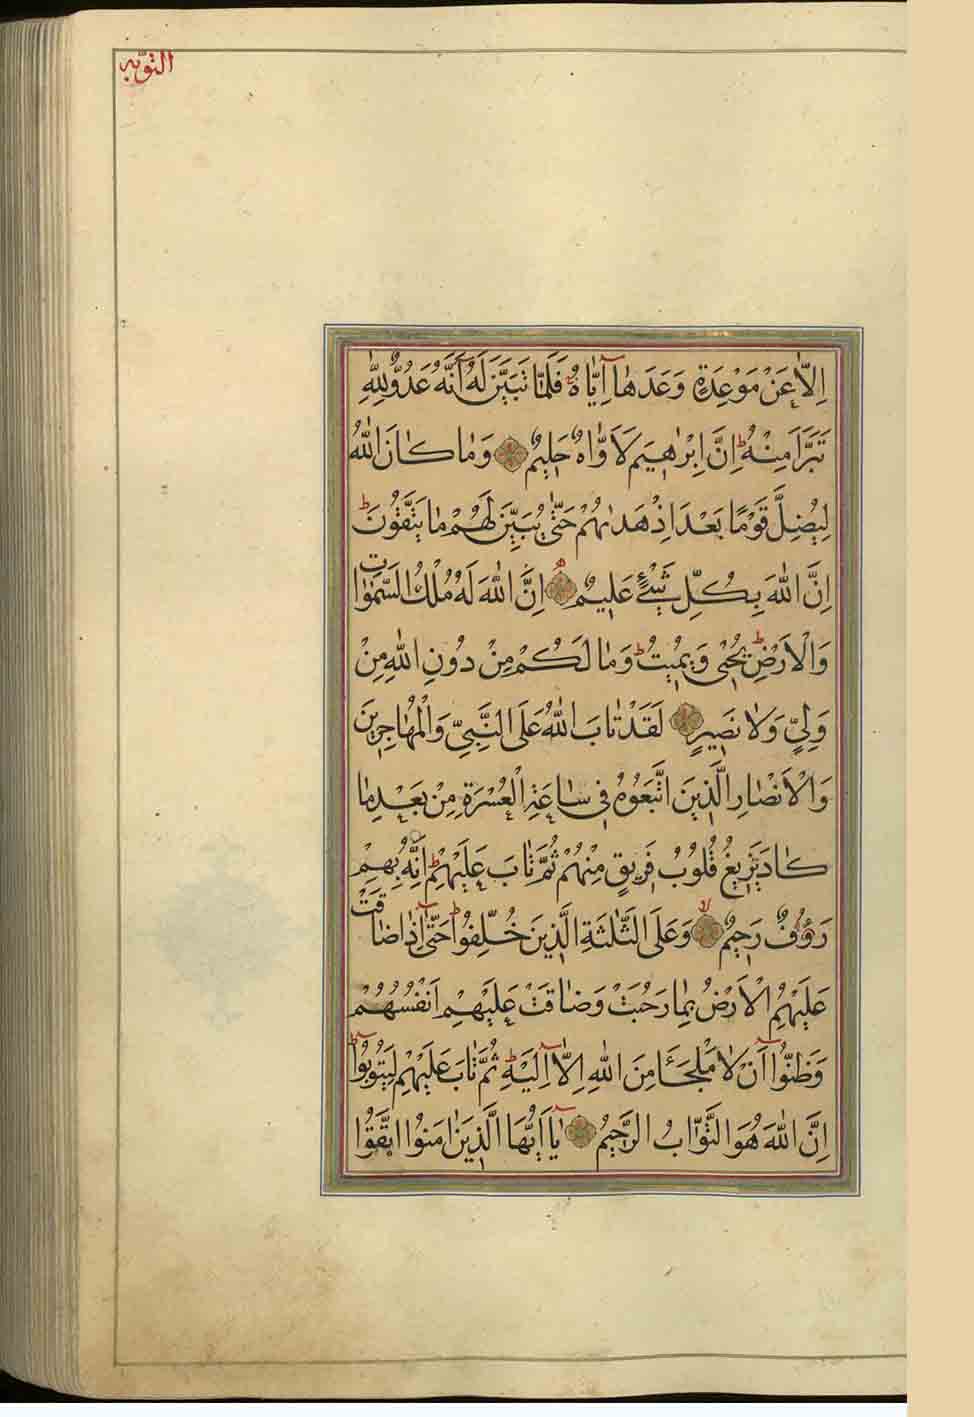 التوبه
اِلَّا عَنْ مَوْعِدَةٍ وَعَدَهَا اِيَّاهُ فَلَمَّا تَبَيَّنَ لَهُ اَنَّهُ عَدُوٌّ لِلّٰهِ
تَبَرَّاَ مِنْهُ ط اِنَّ اِبْرٰهِيمَ لَاَوَّاهٌ حَلِيمٌ وَمَا كَانَ اللّٰهُ
لِيُضِلَّ قَوْمًا بَعْدَ اِذْ هَدٰيهُمْ حَتّٰى يُبَيِّنَ لَهُمْ مَا يَتَّقُونَ ط
اِنَّ اللّٰهَ بِكُلِّ شَىْءٍ عَلِيمٌ اِنَّ اللّٰهَ لَهُ مُلْكُ السَّمٰوٰاتِ
وَالْاَرْضِ ط يُحْيٖى وَيُمِيتُ ط وَمَا لَكُمْ مِنْ دُونِ اللّٰهِ مِنْ
وَلِىٍّ وَلَا نَصِيرٍ لَقَدْ تَابَ اللّٰهُ عَلَى النَّبِىِّ وَالْمُهَاجِرِينَ
وَالْاَنْصَارِ الَّذِينَ اتَّبَعُوهُ فِى سَاعَةِ الْعُسْرَةِ مِنْ بَعْدِ مَا
كَادَ يَزِيغُ قُلُوبُ فَرِيقٍ مِنْهُمْ ثُمَّ تَابَ عَلَيْهِمْ ط اِنَّهُ بِهِمْ
رَؤُفٌ رَحِيمٌ لا وَعَلَى الثَّلٰثَةِ الَّذِينَ خُلِّفُوا ط حَتّٰى اِذَا ضَاقَتْ
عَلَيْهِمُ الْاَرْضُ بِمَا رَحُبَتْ وَضَاقَتْ عَلَيْهِمْ اَنْفُسُهُمْ
وَظَنُّوا اَنْ لَا مَلْجَاَ مِنَ اللّٰهِ اِلَّا اِلَيْهِ ط ثُمَّ تَابَ عَلَيْهِمْ لِيَتُوبُوا ط
اِنَّ اللّٰهَ هُوَ التَّوَّابُ الرَّحِيمُ يَا اَيُّهَا الَّذِينَ اٰمَنُوا اتَّقُوا